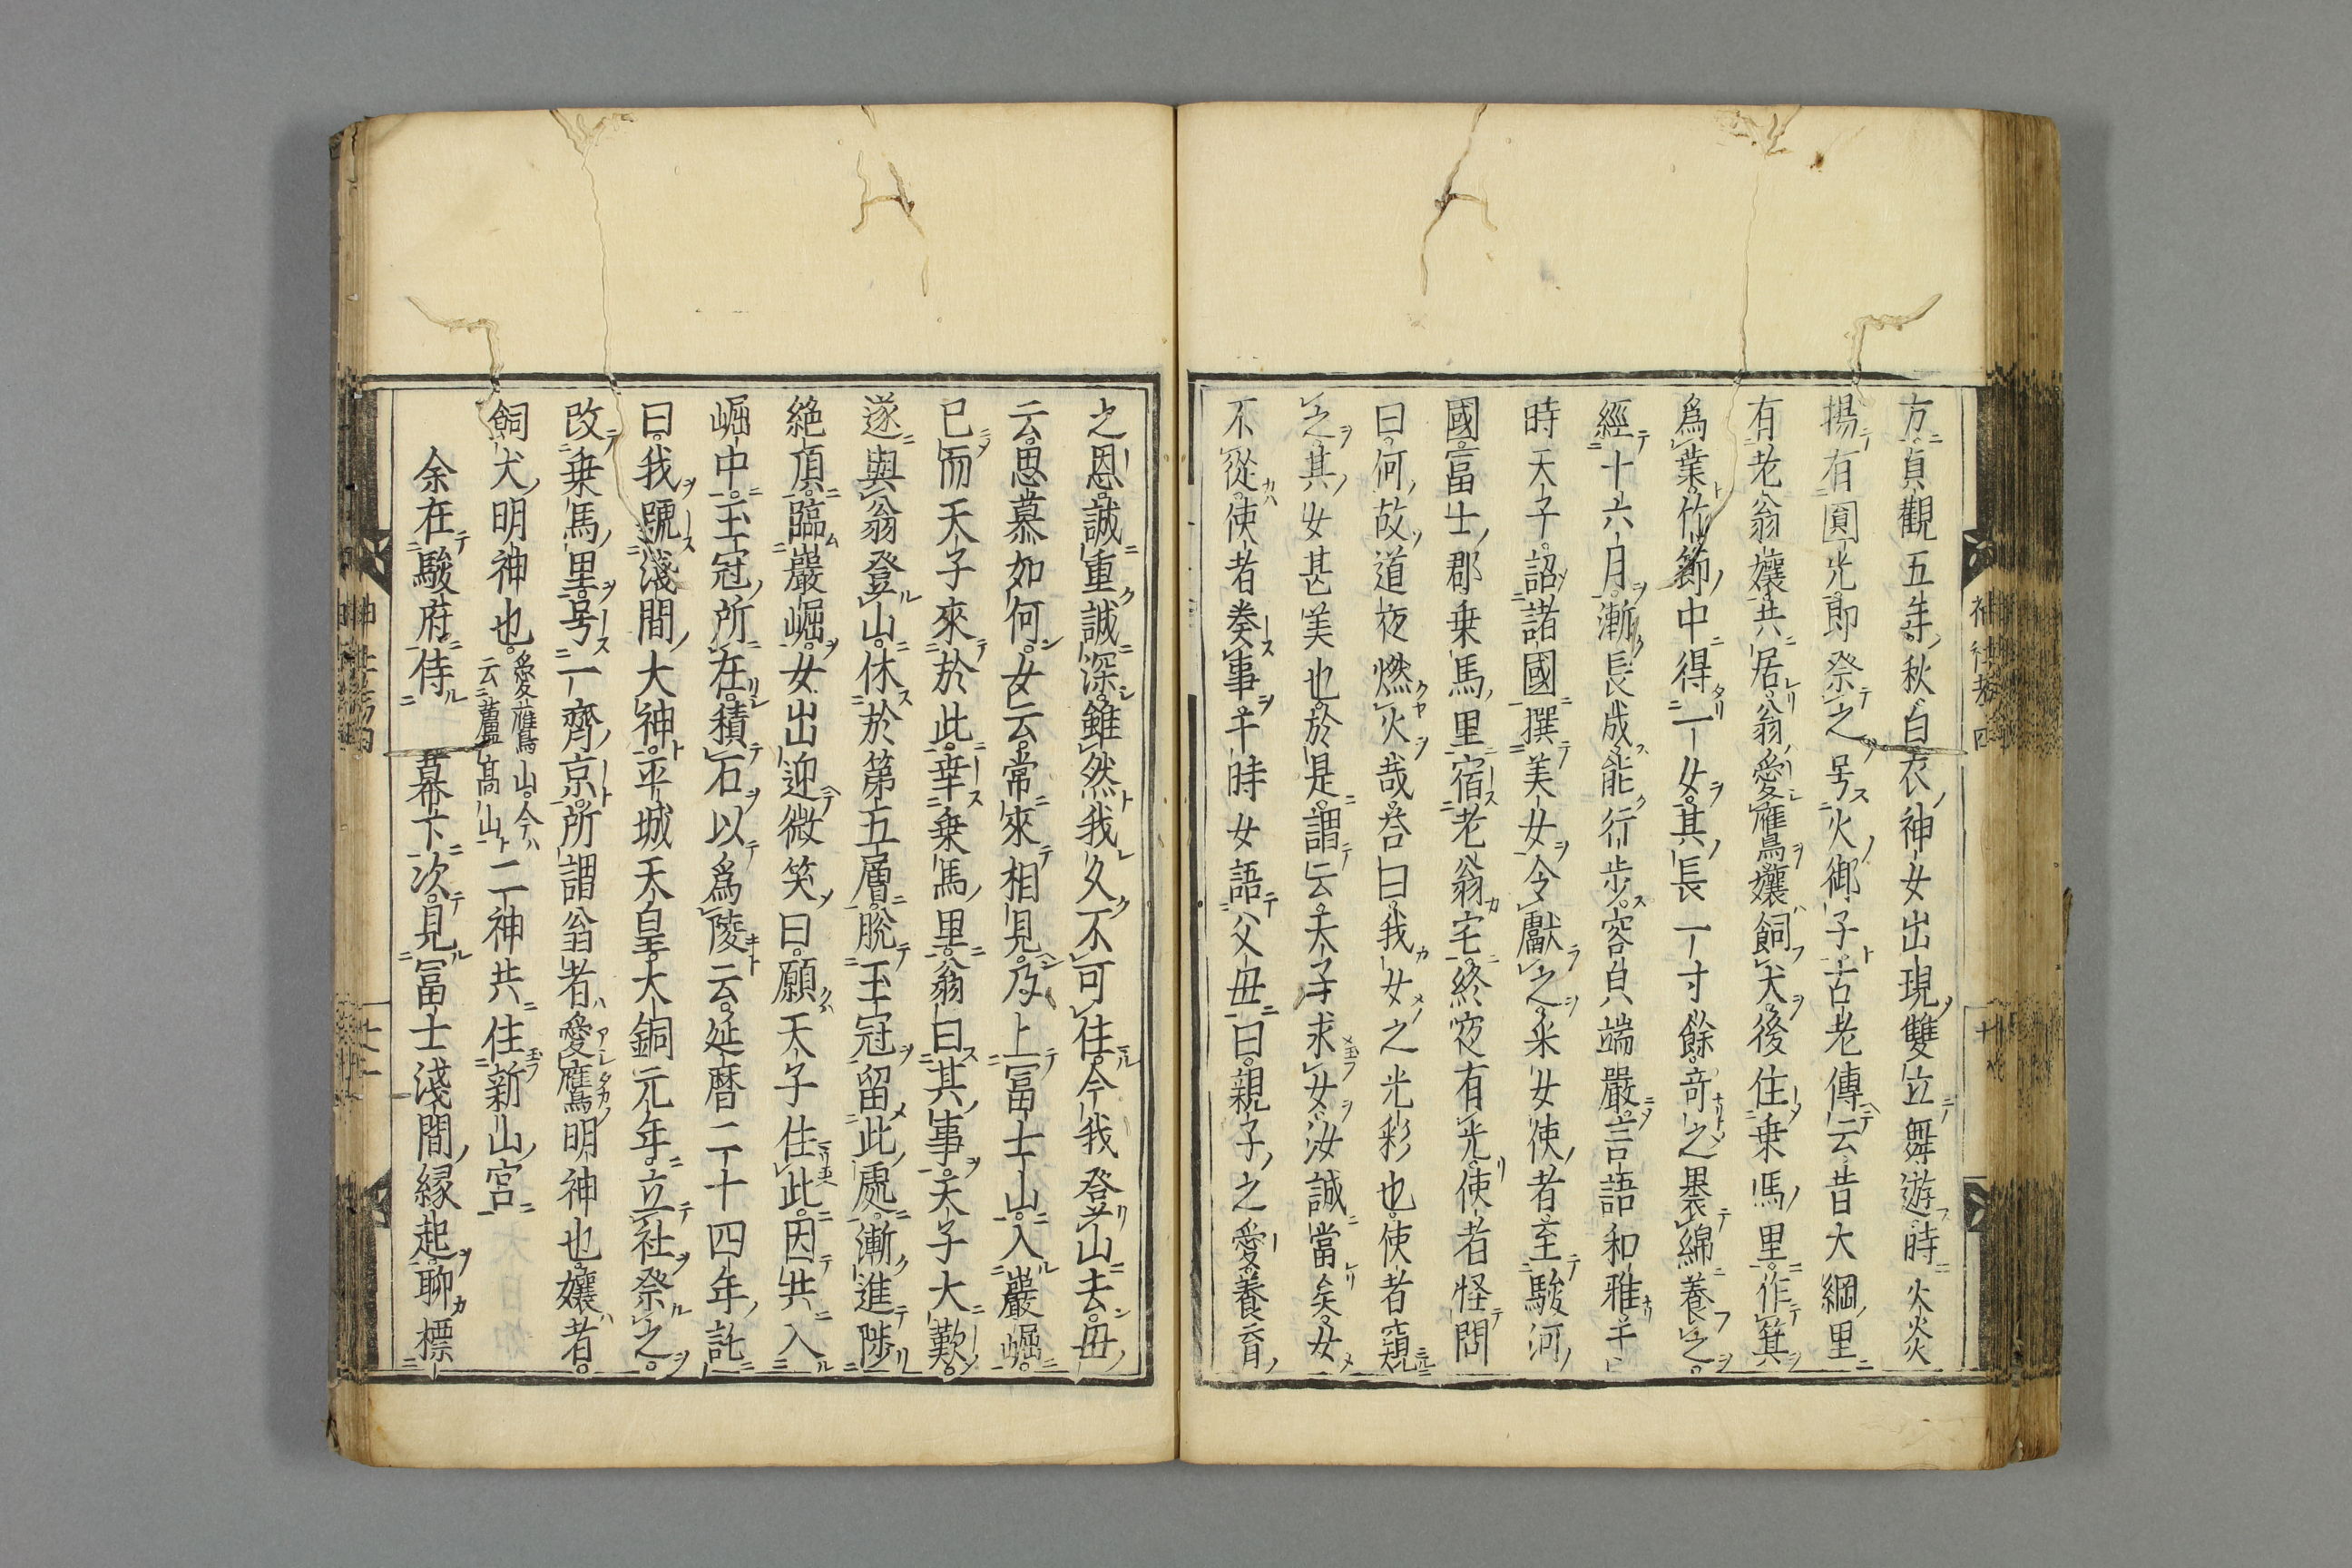 方貞觀五年秋白衣神女出現雙立舞遊時火炎
揚有圓光即祭之号火御子古老傳云昔大綱里
有老翁孃共居翁愛鷹孃飼犬後住乗馬里作箕
爲業竹節中得一女其長一寸餘竒之褁綿養之
經十六月漸長成能行歩容皃端嚴言語和雅于
時天子詔諸國撰美女令獻之采女使者至駿河
國富士郡乗馬里宿老翁宅終夜有光使者怪問
曰何故道夜燃火哉荅曰我女之光彩也使者窺
之其女甚美也於是謂云天子求女汝誠當矣女
不從使者奏事于時女語父毋曰親子之愛養育
之恩誠重誠深雖然我久不可住今我登山去毋
云思慕如何女云常來相見乃上冨士山入巖崛
已而天子來於此幸乗馬里翁曰其事天子大歎
遂與翁登山休於第五層脱玉冠留此處漸進陟
絶頂臨巖崛女出迎微笑曰願天子住此因共入
崛中玉冠所在積石以爲陵云延暦二十四年託
曰我號淺間大神平城天皇大銅元年立社祭之
改乗馬里号一齊京所謂翁者愛鷹明神也孃者
飼犬明神也愛鷹山今云蘆高山二神共住新山宮
余在駿府侍　幕下次見冨士淺間縁起聊標
神社考四
十